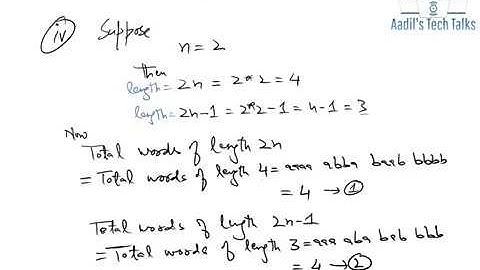 Aadil's Tech Talks
iv Suppose
n = 2
then
length = 2n = 2*2 = 4
length = 2n-1 = 2*2-1 = 4-1 = 3
Now
Total words of length 2n
= Total words of length 4 = aaaa abba baab bbbb
= 4 → 1
Total words of length 2n-1
= Total words of length 3 = aaa aba bab bbb
= 4 → 2